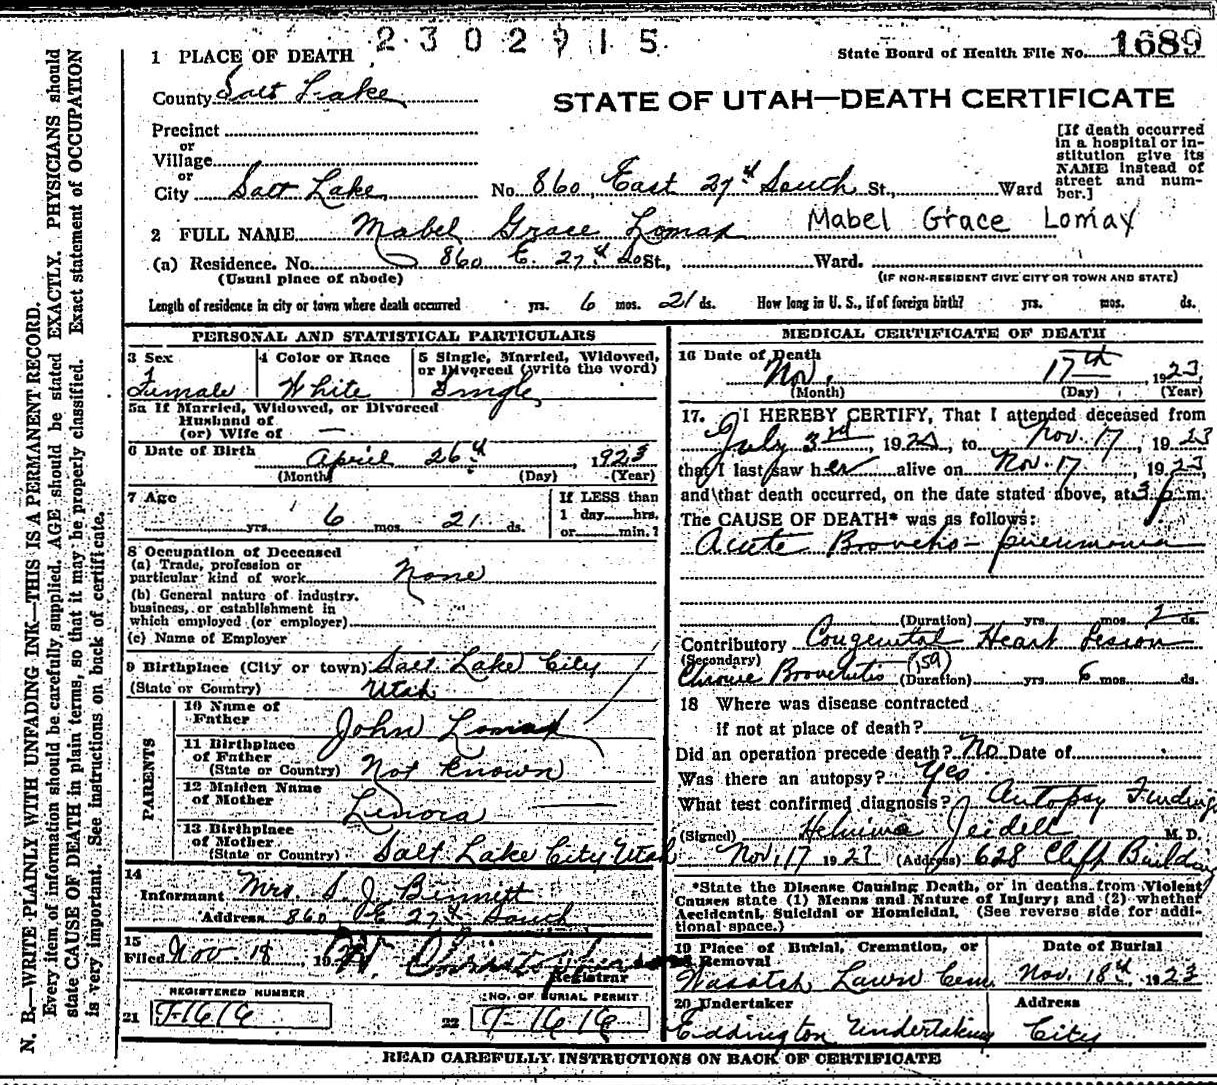 2302915
1 PLACE OF DEATH
State Board of Health File No. 1689
County Salt Lake
STATE OF UTAH—DEATH CERTIFICATE
Precinct
or
Village
or
City Salt Lake No. 860 East 27th South St., Ward
[If death occurred in a hospital or institution give its NAME instead of street and number.]
2 FULL NAME Mabel Grace Lomax Mabel Grace Lomax
(a) Residence. No. 860 E. 27th So St., Ward.
(Usual place of abode) (IF NON-RESIDENT GIVE CITY OR TOWN AND STATE)
Length of residence in city or town where death occurred yrs. 6 mos. 21 ds. How long in U. S., if of foreign birth? yrs. mos. ds.
PERSONAL AND STATISTICAL PARTICULARS
3 Sex
Female
4 Color or Race
White
5 Single, Married, Widowed, or Divorced (write the word)
Single
5a If Married, Widowed, or Divorced
Husband of
(or) Wife of —
6 Date of Birth April 26th, 1923
(Month) (Day) (Year)
7 Age
yrs. 6 mos. 21 ds.
If LESS than
1 day hrs.
or min.?
8 Occupation of Deceased
(a) Trade, profession or
particular kind of work None
(b) General nature of industry,
business, or establishment in
which employed (or employer)
(c) Name of Employer
9 Birthplace (City or town) Salt Lake City
(State or Country) Utah
PARENTS
10 Name of
Father John Lomax
11 Birthplace
of Father
(State or Country) Not Known
12 Maiden Name
of Mother Lenora
13 Birthplace
of Mother
(State or Country) Salt Lake City Utah
14
Informant Mrs. S. J. Binnett
Address 860 E 27th South
15
Filed Nov. 18, 19
Registrar
REGISTERED NUMBER
21 T-1616
NO. OF BURIAL PERMIT
22 T-1616
MEDICAL CERTIFICATE OF DEATH
16 Date of Death
Nov. 17th 1923
(Month) (Day) (Year)
17. I HEREBY CERTIFY, That I attended deceased from
July 3rd, 192 to Nov. 17, 1923
that I last saw her alive on Nov. 17, 1923,
and that death occurred, on the date stated above, at 3 p.m.
The CAUSE OF DEATH* was as follows:
Acute Broncho-pneumonia
(Duration) yrs. mos. 2 ds.
Contributory Congenital Heart Lesion
(Secondary)
Chronic Bronchitis (159) (Duration) yrs 6 mos. ds.
18 Where was disease contracted
if not at place of death?
Did an operation precede death? No Date of
Was there an autopsy? Yes
What test confirmed diagnosis? Autopsy Findings
(Signed) M. D.
Nov. 17 1923 (Address) 628 Cliff Building
*State the Disease Causing Death, or in deaths from Violent Causes state (1) Means and Nature of Injury; and (2) whether Accidental, Suicidal or Homicidal. (See reverse side for additional space.)
19 Place of Burial, Cremation, or
Removal
Wasatch Lawn Cem.
Date of Burial
Nov. 18th 1923
20 Undertaker
Eddington Undertaking
Address
City
READ CAREFULLY INSTRUCTIONS ON BACK OF CERTIFICATE
N. B.—WRITE PLAINLY WITH UNFADING INK—THIS IS A PERMANENT RECORD.
Every item of information should be carefully supplied. AGE should be stated EXACTLY. PHYSICIANS should
state CAUSE OF DEATH in plain terms, so that it may be properly classified. Exact statement of OCCUPATION
is very important. See instructions on back of certificate.